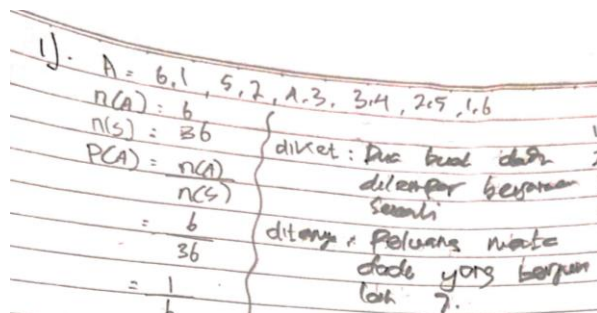 1). A = 6,1 , 5,2 , 4.3. 3.4 , 2.5 , 1.6
n(A) : 6
n(S) : 36
P(A) = n(A)
n(S)
= 6
36
= 1
6
diket : Dua buah dadu
dilempar bersamaan
Sekali
ditanya : Peluang mata
dadu yang berjum
lah 7.